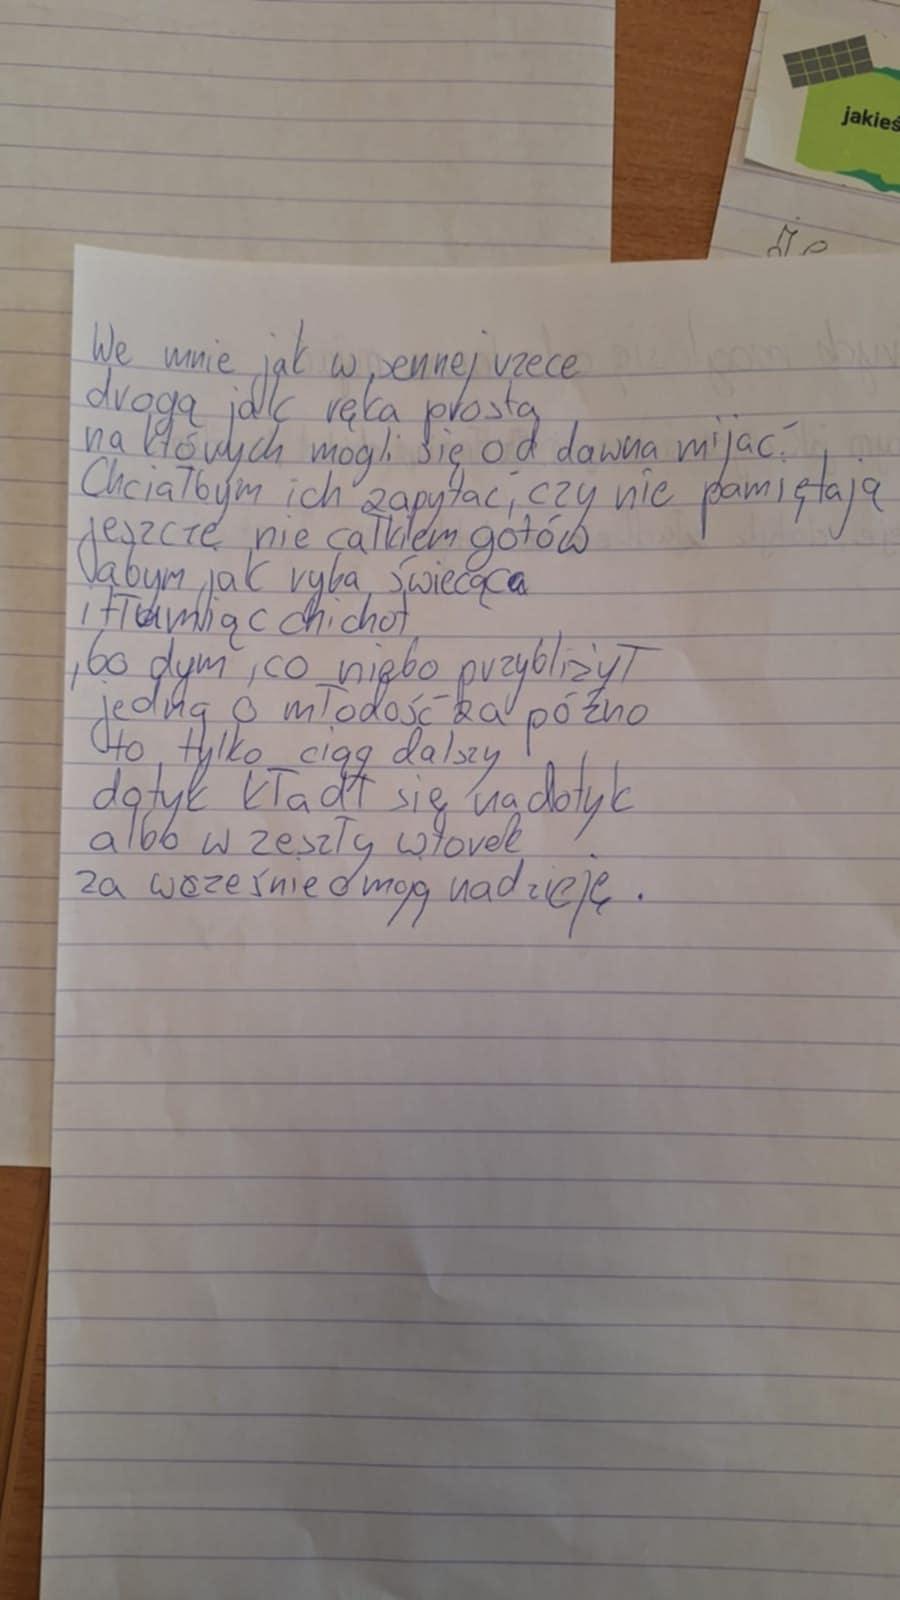 jakieś
że
We mnie jak w sennej rzece
drogą jak ręka prosta
na których mogli się od dawna mijać.
Chciałbym ich zapytać, czy nie pamiętają
jeszcze nie całkiem gotów
abym jak ryba świecąca
i tłumiąc chichot
,bo dym ,co niebo przybliżył
jedną o młodość za późno
to tylko ciąg dalszy
dotyk kładł się na dotyk
albo w zeszły wtorek
za wcześnie o mą nadzieję.